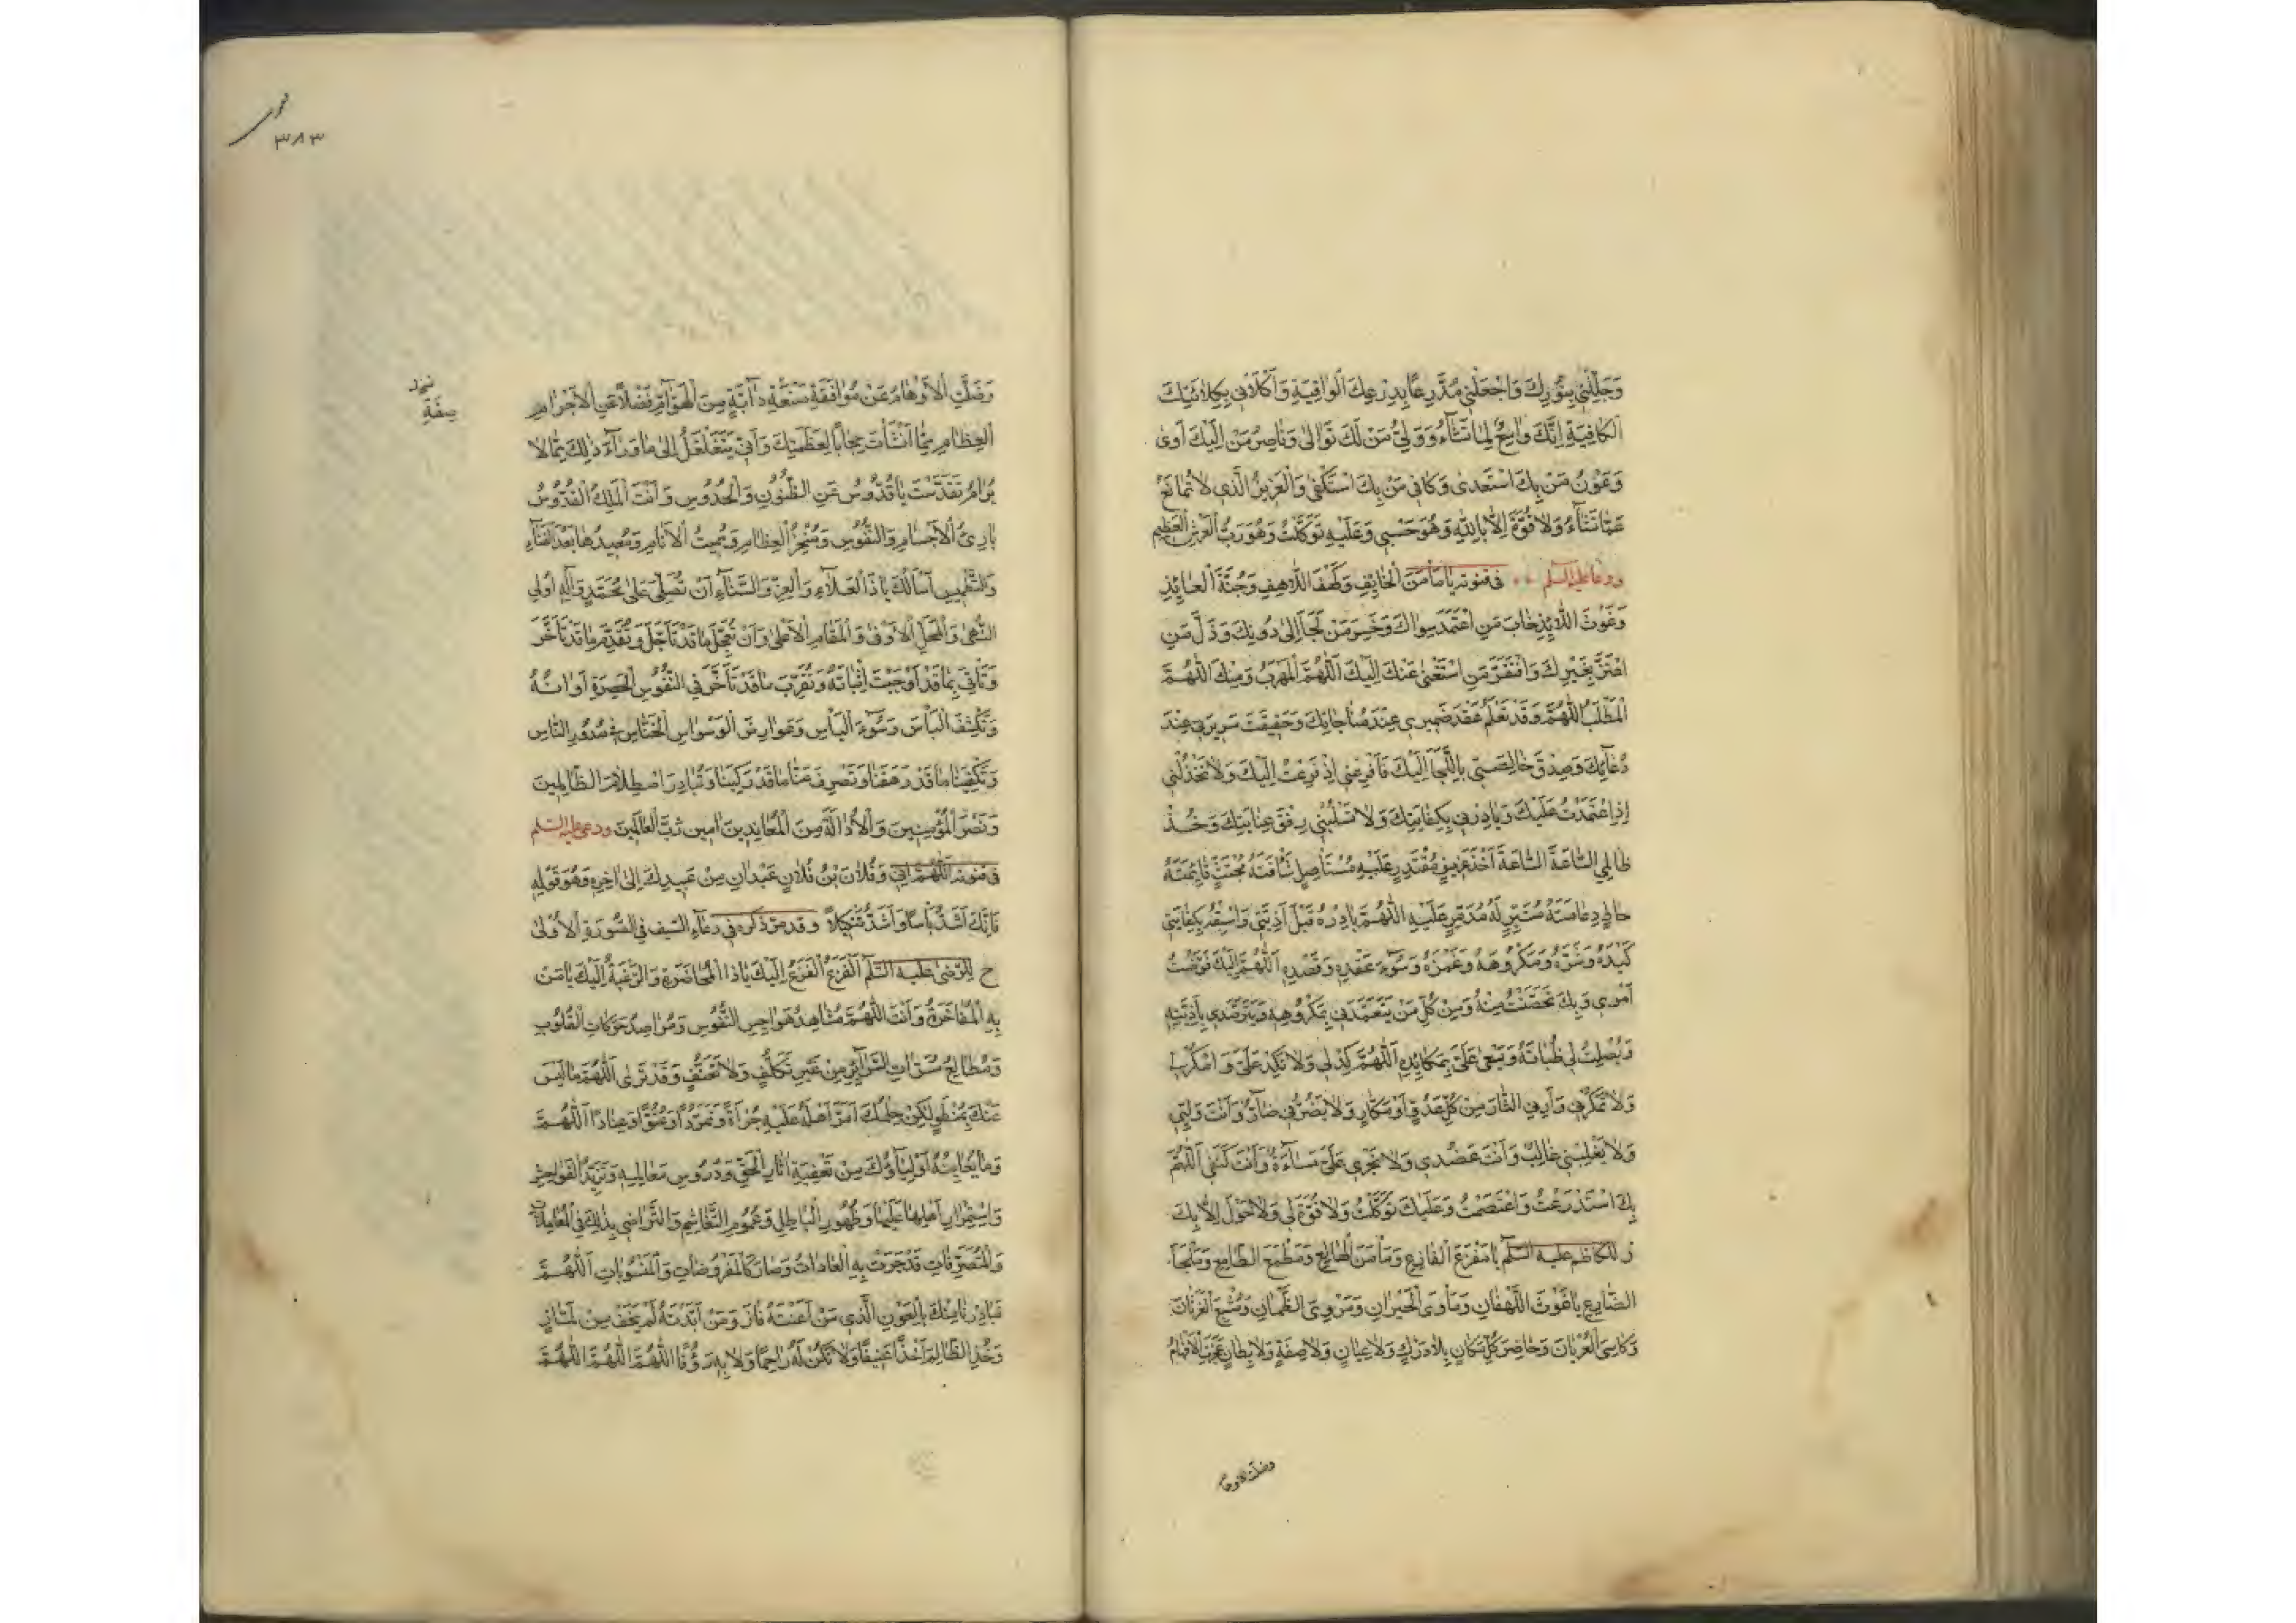 وَجَلِّلْنِي بِنُورِكَ وَاجْعَلْنِي مُدَّرِعًا بِدِرْعِكَ الْوَاقِيَةِ وَاكْلَأْنِي بِكِلَائَتِكَ
الْكَافِيَةِ اِنَّكَ وَاسِعٌ لِمَا تَشَآءُ وَوَلِيُّ مَنْ لَكَ تَوَالىٰ وَنَاصِرُ مَنْ اِلَيْكَ آوىٰ
وَعَوْنُ مَنْ بِكَ اسْتَعْدىٰ وَكَافِي مَنْ بِكَ اسْتَكْفىٰ وَالْعَزِيزُ الَّذِي لَا تُمَانَعُ
عَمَّا تَشَآءُ وَلَا قُوَّةَ اِلَّا بِاللّٰهِ وَهُوَ حَسْبِي وَعَلَيْهِ تَوَكَّلْتُ وَهُوَ رَبُّ الْعَرْشِ الْعَظِيمِ
ودعا عليه السلم في قنوته يَا مَأْمَنَ الْخَايِفِ وَكَهْفَ اللَّاهِفِ وَجُنَّةَ الْعَايِذِ
وَغَوْثَ اللَّايِذِ خَابَ مَنِ اعْتَمَدَ سِوَاكَ وَخَسِرَ مَنْ لَجَأَ اِلىٰ دُونِكَ وَذَلَّ مَنِ
اعْتَزَّ بِغَيْرِكَ وَافْتَقَرَ مَنِ اسْتَغْنىٰ عَنْكَ اِلَيْكَ اَللّٰهُمَّ الْمَهْرَبُ وَمِنْكَ اللّٰهُمَّ
الْمَطْلَبُ اَللّٰهُمَّ وَقَدْ تَعْلَمُ عَقْدَ ضَمِيرِي عِنْدَ مُنَاجَاتِكَ وَحَقِيقَتَ سَرِيرَتِي عِنْدَ
دُعَآئِكَ وَصِدْقَ خَالِصَتِي بِاللَّجَأِ اِلَيْكَ فَافْزِعْنِي اِذْ فَزِعْتُ اِلَيْكَ وَلَا تَخْذُلْنِي
اِذِ اعْتَمَدْتُ عَلَيْكَ وَبَادِرْنِي بِكِفَايَتِكَ وَلَا تَسْلُبْنِي رِفْقَ عِنَايَتِكَ وَخُذْ
ظَالِمِي السَّاعَةَ السَّاعَةَ اَخْذَ عَزِيزٍ مُقْتَدِرٍ عَلَيْهِ مُسْتَأْصِلٍ شَأْفَتَهُ مُجْتَثٍّ قَائِمَتَهُ
حَاطٍّ دِعَامَتَهُ مُتَبِّرٍ لَهُ مُدَمِّرٍ عَلَيْهِ اَللّٰهُمَّ بَادِرْهُ قَبْلَ اَذِيَّتِي وَاسْبِقْهُ بِكِفَايَتِي
كَيْدَهُ وَشَرَّهُ وَمَكْرُوهَهُ وَغَمْزَهُ وَسُوٓءَ عَقْدِهِ وَقَصْدِهِ اَللّٰهُمَّ اِلَيْكَ فَوَّضْتُ
اَمْرِي وَبِكَ تَحَصَّنْتُ مِنْهُ وَمِنْ كُلِّ مَنْ يَتَعَمَّدَنِي بِمَكْرُوهِهِ وَيَتَرَصَّدُنِي بِاَذِيَّتِهِ
وَيُصْلِتُ لِي ظُبَاتَهُ وَيَسْعىٰ عَلَيَّ بِمَكَايِدِهِ اَللّٰهُمَّ كِدْ لِي وَلَا تَكِدْ عَلَيَّ وَامْكُرْ لِي
وَلَا تَمْكُرْ بِي وَاَرِنِي الثَّارَ مِنْ كُلِّ عَدُوٍّ اَوْ مَكَّارٍ وَلَا يَضُرُّنِي ضَآرٌّ وَاَنْتَ وَلِيِّي
وَلَا يَغْلِبُنِي مُغَالِبٌ وَاَنْتَ عَضُدِي وَلَا تَجْرِي عَلَيَّ مَسَآءَةٌ وَاَنْتَ كَنَفِي اَللّٰهُمَّ
بِكَ اسْتَذْرَعْتُ وَاعْتَصَمْتُ وَعَلَيْكَ تَوَكَّلْتُ وَلَا قُوَّةَ لِي وَلَا حَوْلَ اِلَّا بِكَ
ز للكاظم عليه السلم يَا مَفْزَعَ الْفَازِعِ وَمَأْمَنَ الْهَالِعِ وَمَطْمَعَ الطَّامِعِ وَمَلْجَأَ
الضَّايِعِ يَا غَوْثَ اللَّهْفَانِ وَمَأْوَى الْحَيْرَانِ وَمُرْوِيَ الظَّمْاٰنِ وَمُشْبِعَ الْغَرْثَانِ
وَكَاسِيَ الْعُرْيَانِ وَحَاضِرَ كُلِّ مَكَانٍ بِلَا دَرَكٍ وَلَا عِيَانٍ وَلَا صِفَةٍ وَلَا بِطَانٍ عَجَزَتِ الْاَفْهَامُ
وضلت الاوهام
٣٨٣
وَضَلَّتِ الْاَوْهَامُ عَنْ مُوَافَقَةِ صَنْعَةِ دَآبَّةٍ مِنَ الْهَوَآمِّ فَضْلًا عَنِ الْاَجْرَامِ
صِفَةِ
الْعِظَامِ مِمَّا اَنْشَأْتَ حِجَابًا لِعَظَمَتِكَ وَاَنّٰى يَتَغَلْغَلُ اِلىٰ مَا وَرَآءَ ذٰلِكَ بِمَا لَا
يُرَامُ تَقَدَّسْتَ يَا قُدُّوسُ عَنِ الظُّنُونِ وَالْحُدُوسِ وَاَنْتَ الْمَلِكُ الْقُدُّوسُ
بَارِئُ الْاَجْسَامِ وَالنُّفُوسِ وَمُنْخِرُ الْعِظَامِ وَمُمِيتُ الْاَنَامِ وَمُعِيدُهَا بَعْدَ الْفَنَآءِ
وَالتَّطْمِيسِ اَسْأَلُكَ يَا ذَا الْعَلَآءِ وَالْعِزِّ وَالسَّنَآءِ اَنْ تُصَلِّيَ عَلىٰ مُحَمَّدٍ وَاٰلِهِ اُولِي
النُّهىٰ وَالْمَحَلِّ الْاَوْفىٰ وَالْمَقَامِ الْاَعْلىٰ وَاَنْ تُعَجِّلَ مَا قَدْ تَأَجَّلَ وَتُقَدِّمَ مَا قَدْ تَأَخَّرَ
وَتَأْتِيَ بِمَا قَدْ اَوْجَبْتَ اِتْيَانَهُ وَتُقَرِّبَ مَا قَدْ تَأَخَّرَ فِي النُّفُوسِ الْحَصِرَةِ اَوَانُهُ
وَتَكْشِفَ الْبَأْسَ وَسُوٓءَ الْبَأْسِ وَعَوَارِضَ الْوَسْوَاسِ الْخَنَّاسِ فِي صُدُورِ النَّاسِ
وَتَكْفِيَنَا مَا قَدْ رَهَقَنَا وَتَصْرِفَ عَنَّا مَا قَدْ رَكِبَنَا وَتُبَادِرَ اصْطِلَامَ الظَّالِمِينَ
وَنَصْرَ الْمُؤْمِنِينَ وَالْاِدَالَةَ مِنَ الْمُعَانِدِينَ اٰمِينَ رَبَّ الْعَالَمِينَ ودعى عليه السلم
في قنوته اَللّٰهُمَّ اِنِّي وَفُلَانَ بْنَ فُلَانٍ عَبْدَانِ مِنْ عَبِيدِكَ اِلىٰ اٰخِرِهِ وَهُوَ قَوْلُهُ
فَاِنَّكَ اَشَدُّ بَأْسًا وَاَشَدُّ تَنْكِيلًا وقد مر ذكره في دعآء السيف في السُّورَةِ الْاُولىٰ
ح للرضى عليه السلم اَلْفَزَعُ الْفَزَعُ اِلَيْكَ يَا ذَا الْمُحَاضَرَةِ وَالرَّغْبَةُ اِلَيْكَ يَا مَنْ
بِهِ الْمُفَاخَرَةُ وَاَنْتَ اللّٰهُمَّ مُشَاهِدُ هَوَاجِسِ النُّفُوسِ وَمُرَاصِدُ حَرَكَاتِ الْقُلُوبِ
وَمُطَالِعُ مَسَرَّاتِ السَّرَآئِرِ مِنْ غَيْرِ تَكَلُّفٍ وَلَا تَعَسُّفٍ وَقَدْ تَرىٰ اَللّٰهُمَّ مَا لَيْسَ
عَنْكَ بِمُنْطَوٍ لٰكِنْ حِلْمُكَ اٰمَنَ اَهْلَهُ عَلَيْهِ جُرْأَةً وَتَمَرُّدًا وَعُتُوًّا وَعِنَادًا اَللّٰهُمَّ
وَمَا يُعَانِيهُ اَوْلِيَآؤُكَ مِنْ تَعْفِيَةِ اٰثَارِ الْحَقِّ وَدُرُوسِ مَعَالِمِهِ وَتَزَيُّدِ الْفَوَاحِشِ
وَاسْتِمْرَارِ اَهْلِهَا عَلَيْهَا وَظُهُورِ الْبَاطِلِ وَعُمُومِ التَّغَاشُمِ وَالتَّرَاضِي بِذٰلِكَ فِي الْمُعَامَلَاتِ
وَالْمُتَصَرِّفَاتِ قَدْ جَرَتْ بِهِ الْعَادَاتُ وَصَارَ كَالْمَفْرُوضَاتِ وَالْمَسْنُونَاتِ اَللّٰهُمَّ
فَبَادِرْنَا مِنْكَ بِالْعَوْنِ الَّذِي مَنْ اَعَنْتَهُ فَازَ وَمَنْ اَيَّدْتَهُ لَمْ يَخَفْ مِنْ لَمَّازٍ
وَخُذِ الظَّالِمَ اَخْذًا عَنِيفًا وَلَا تَكُنْ لَهُ رَاحِمًا وَلَا بِهِ رَؤُفًا اَللّٰهُمَّ اَللّٰهُمَّ اَللّٰهُمَّ